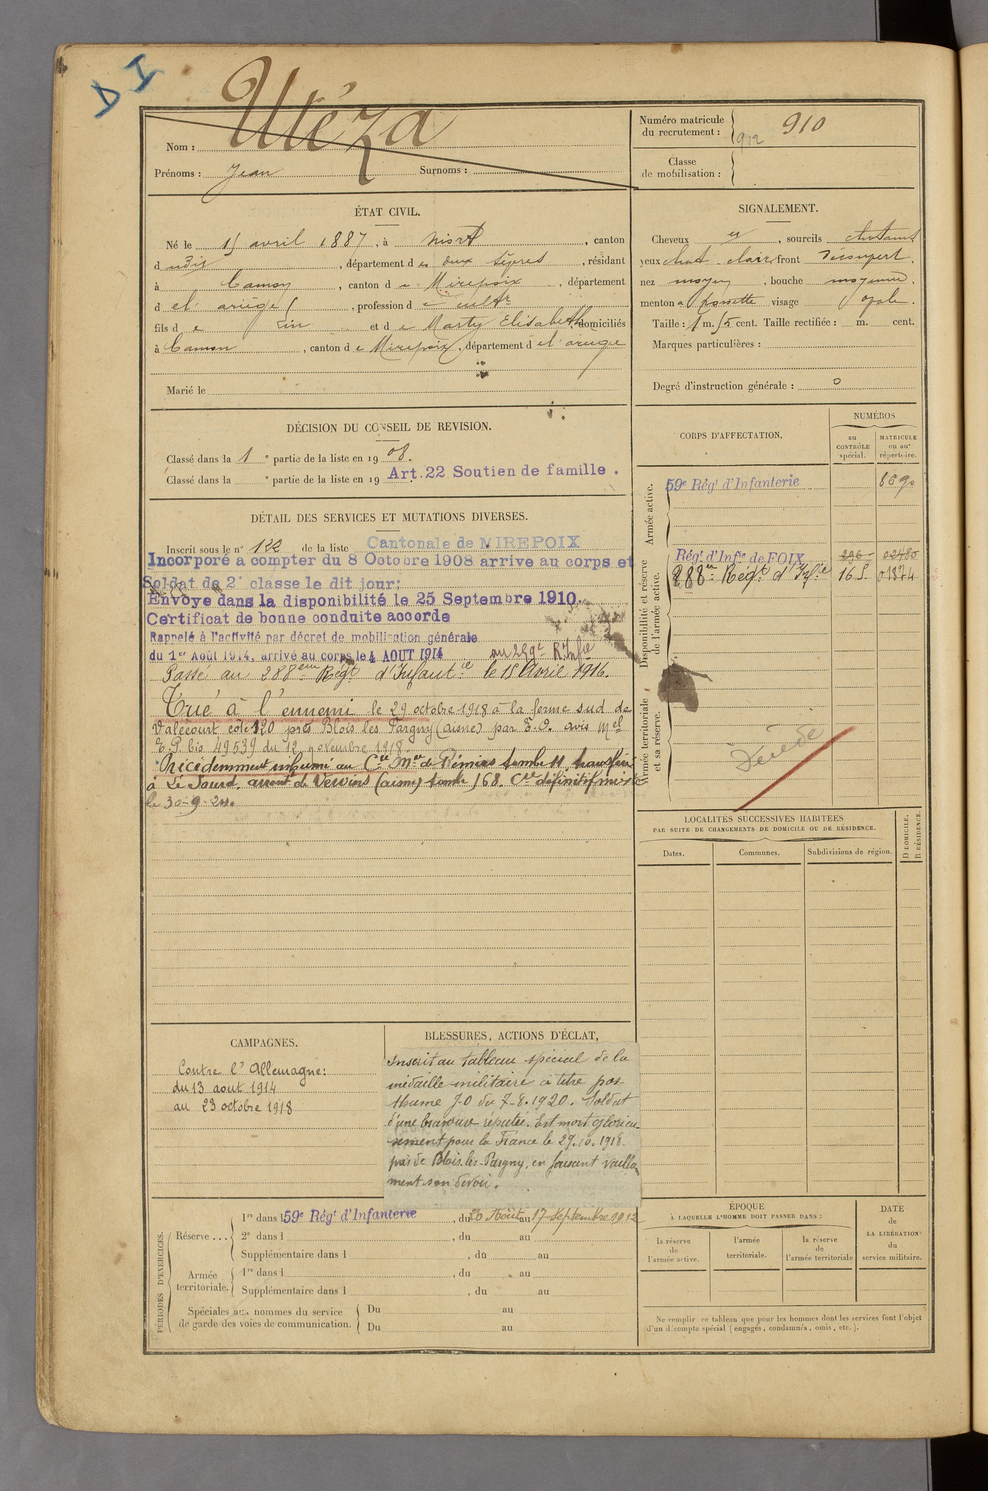 DI
Nom : Utéza
Prénoms : Jean Surnoms :
Numéro matricule du recrutement : 910
912
Classe de mobilisation :
ÉTAT CIVIL.
Né le 15 avril 1887, à Niort, canton
d udit, département d es Deux Sèvres, résidant
à Camon, canton d e Mirepoix, département
d e l'ariège, profession d e cultr
fils d e et d e Marty Elisabeth domiciliés
à Camon, canton d e Mirepoix, département d e l'ariège
Marié le
SIGNALEMENT.
Cheveux et, sourcils chatains
yeux chat. clair, front découvert
nez moyen, bouche moyenne
menton à fossette visage ovale.
Taille : 1 m. 5 cent. Taille rectifiée : m. cent.
Marques particulières :
Degré d'instruction générale : 0
DÉCISION DU CONSEIL DE REVISION.
Classé dans la 1e partie de la liste en 1908.
Classé dans la e partie de la liste en 19 Art. 22 Soutien de famille.
DÉTAIL DES SERVICES ET MUTATIONS DIVERSES.
Inscrit sous le n° 122 de la liste Cantonale de MIREPOIX
Incorporé à compter du 8 Octobre 1908 arrive au corps et
Soldat de 2e classe le dit jour;
Envoyé dans la disponibilité le 25 Septembre 1910.
Certificat de bonne conduite accordé
Rappelé à l'activité par décret de mobilisation générale
du 1er Août 1914, arrivé au corps le 4 AOUT 1914 au 259e R. Infie
Passé au 288eme Régt d'Infantie le 15 Avril 1916.
Tué à l'ennemi le 29 octobre 1918 à la ferme sud de
Valécourt côte 120 près Blois les Pargny (aisne) par T.O. avis Mel
E.P. bis 49539 du 12 novembre 1918.
Précédemment inhumé au Cre Mre de Rémies tombe 11, transféré
à Le Sourd, arront de Vervins (aisne) tombe 168. Cre définitif
le 30-9-24.
CORPS D'AFFECTATION.
NUMÉROS
au CONTRÔLE spécial.
MATRICULE ou au répertoire.
Armée active.
59e Régt d'Infanterie
Disponibilité et réserve de l'armée active.
Régt d'Infie de FOIX 296 02480
288e Régt d'Infie 165 01874
Armée territoriale et sa réserve.
Décédé
LOCALITÉS SUCCESSIVES HABITÉES
PAR SUITE DE CHANGEMENTS DE DOMICILE OU DE RÉSIDENCE.
Dates. Communes. Subdivisions de région. D DOMICILE. R RÉSIDENCE.
CAMPAGNES.
Contre l'Allemagne:
du 13 aout 1914
au 23 octobre 1918
BLESSURES, ACTIONS D'ÉCLAT,
Inscrit au tableau spécial de la
médaille militaire à titre pos-
thume J.O du 7-8-1920. Soldat
d'une bravoure réputée. Est mort glorieu-
sement pour la France le 29.10.1918
près de Blois-les-Pargny, en faisant vaillam
ment son devoir.
PÉRIODES D'EXERCICES.
Réserve ... 1re dans l 59e Régt d'Infanterie, du 20 Août au 17 Septembre 1912
2e dans l , du au
Supplémentaire dans l , du au
Armée territoriale. 1re dans l , du au
Supplémentaire dans l , du au
Spéciales aux hommes du service de garde des voies de communication. Du au
Du au
ÉPOQUE
À LAQUELLE L'HOMME DOIT PASSER DANS :
la réserve de l'armée active.
l'armée territoriale.
la réserve de l'armée territoriale
DATE de LA LIBÉRATION du service militaire.
Ne remplir ce tableau que pour les hommes dont les services font l'objet
d'un décompte spécial (engagés, condamnés, omis, etc.).